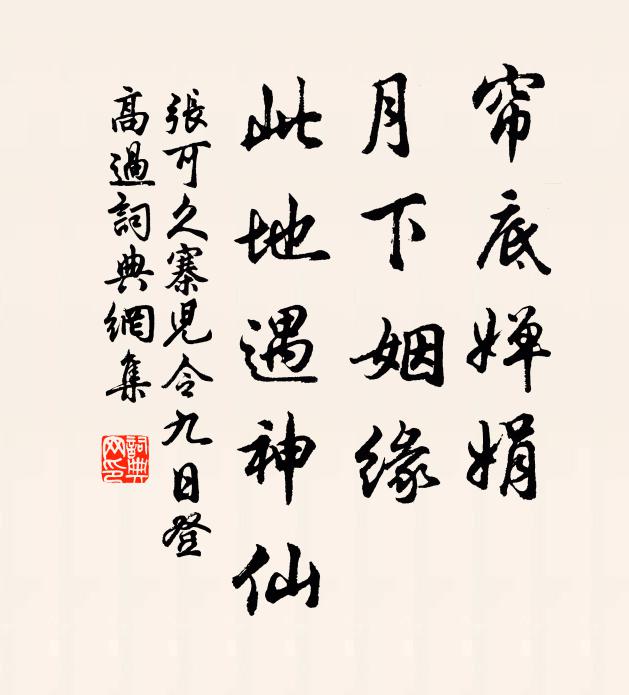 帘底婵娟
月下姻緣
此地遇神仙
張可久寨兒令九日登
高過詞典網集
詞典网印